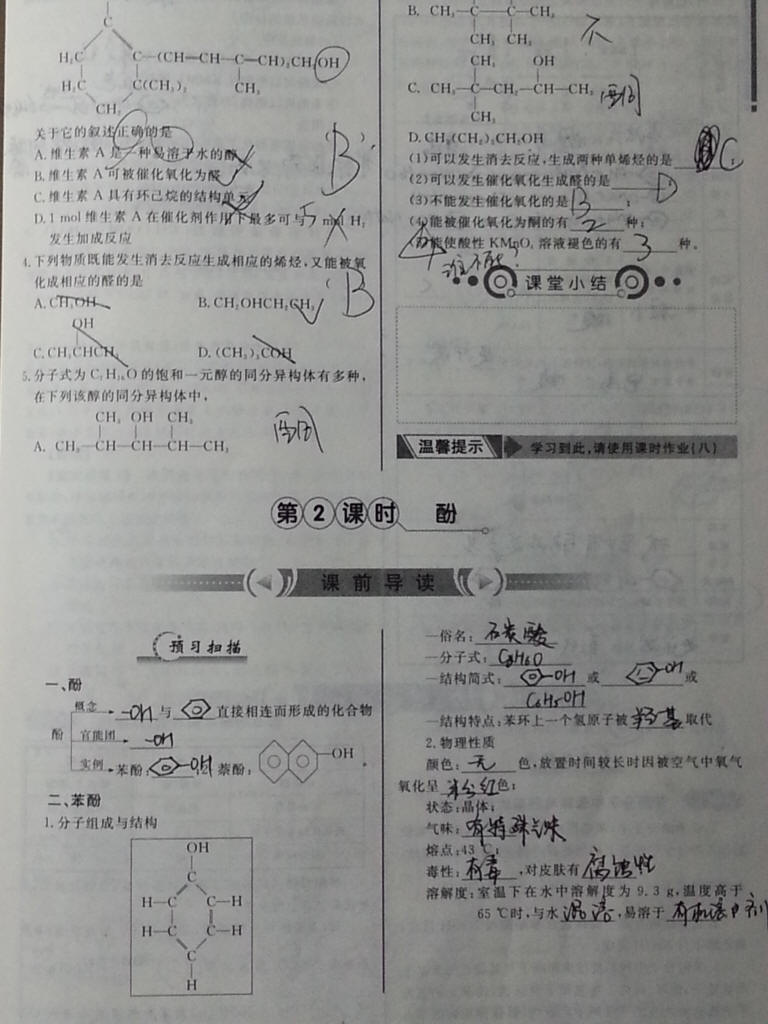 C
H₃C C—(CH=CH—C=CH)₂CH₂OH
H₂C C(CH₃)₂ CH₃
CH₂
关于它的叙述正确的是 ( B )
A.维生素 A 是一种易溶于水的醇
B.维生素 A 可被催化氧化为醛
C.维生素 A 具有环己烷的结构单元
D.1 mol 维生素 A 在催化剂作用下最多可与 5 mol H₂
发生加成反应
4.下列物质既能发生消去反应生成相应的烯烃,又能被氧
化成相应的醛的是 ( B
A.CH₃OH B.CH₂OHCH₂CH₃
OH
C.CH₃CHCH₃ D.(CH₃)₃COH
5.分子式为 C₇H₁₆O 的饱和一元醇的同分异构体有多种,
在下列该醇的同分异构体中,
CH₃ OH CH₃
A. CH₃—CH—CH—CH—CH₃ 丙同
B. CH₃—C—C—CH₃
CH₃ CH₃ 不
CH₃ OH
C. CH₃—C—CH₂—CH—CH₃
CH₃
D.CH₃(CH₂)₅CH₂OH
(1)可以发生消去反应,生成两种单烯烃的是 C;
(2)可以发生催化氧化生成醛的是 D
(3)不能发生催化氧化的是 B ;
(4)能被催化氧化为酮的有 2 种;
(5)能使酸性 KMnO₄ 溶液褪色的有 3 种。
4 谁不能?
课堂小结
温馨提示 学习到此,请使用课时作业(八)
第2课时 酚
课前导读
预习扫描
一、酚
概念 -OH 与 直接相连而形成的化合物
酚 官能团 -OH
实例 苯酚: -OH ;萘酚: —OH 。
二、苯酚
1.分子组成与结构
OH
C
H—C C—H
H—C C—H
C
H
—俗名: 石炭酸
—分子式: C₆H₆O
—结构简式: -OH 或 -OH 或
C₆H₅OH
—结构特点:苯环上一个氢原子被 羟基 取代
2.物理性质
颜色: 无 色,放置时间较长时因被空气中氧气
氧化呈 粉红 色;
状态:晶体;
气味: 有特殊气味
熔点:43 ℃;
毒性: 有毒 ,对皮肤有 腐蚀性
溶解度:室温下在水中溶解度为 9.3 g,温度高于
65 ℃时,与水 混溶 ,易溶于 有机溶剂